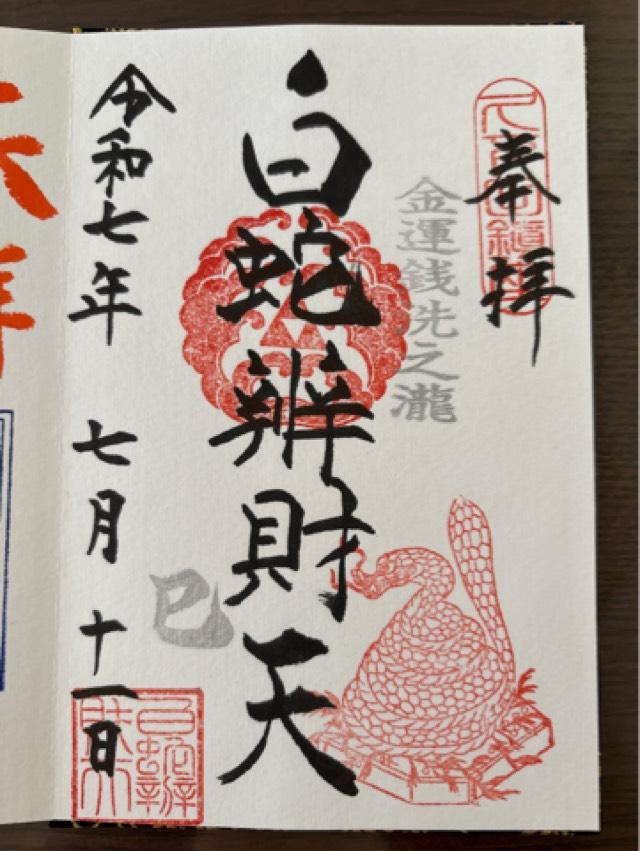 奉拝
金運銭洗之瀧
白蛇辨財天
巳
令和七年 七月 十一日